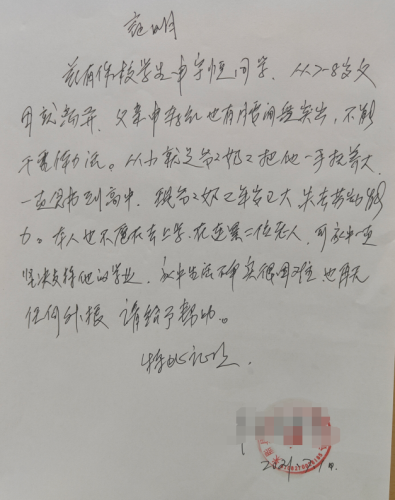 证明
兹有你校学生申宇恒同学，从7-8岁父
母就离异，父亲申 也有腰间盘突出，不能
干重体力活。从小就是爷爷奶奶把他一手拉养大，
一直读书到高中，现爷爷奶奶年岁已大失去劳动能
力。本人也不愿在去上学，在连累二位老人，可家中一直
坚决支持他的学业，家中生活确实很困难，也再无
任何外援 请给予帮助。
特此证明。